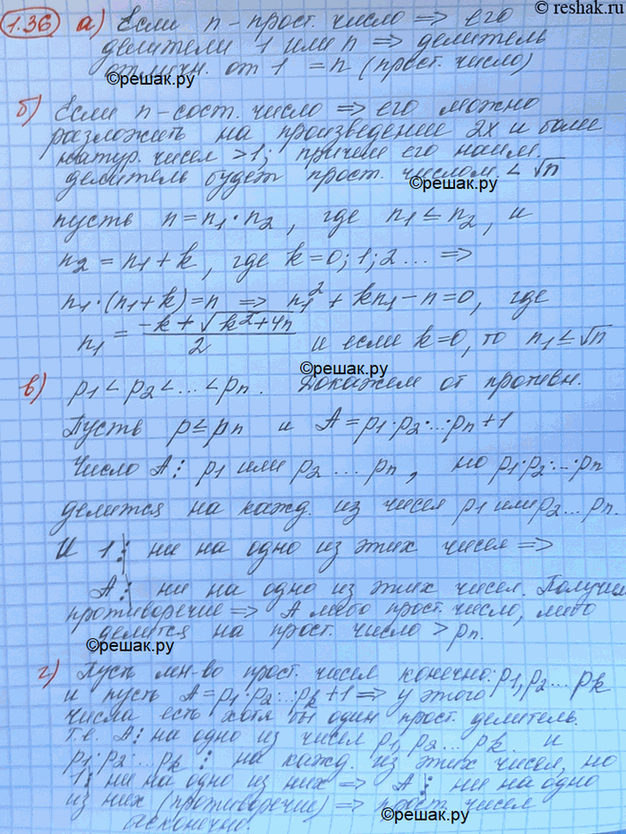 © reshak.ru
1.36 а) Если n - прост. число ⇒ его
делители 1 или n ⇒ делитель
отличн. от 1 = n (прост. число)
©решак.ру
б) Если n - сост. число ⇒ его можно
разложить на произведении 2х и более
натур. чисел >1; причём его наим.
делитель будет прост. числом < √n
©решак.ру
пусть n = n1 · n2, где n1 ≤ n2, и
n2 = n1 + k, где k = 0; 1; 2 ... ⇒
n1 · (n1 + k) = n ⇒ n1² + kn1 - n = 0, где
n1 = (-k + √(k² + 4n))/2 и если k = 0, то n1 ≤ √n
©решак.ру
в) p1 < p2 < ... < pn. Докажем от противн.
Пусть p ≤ pn и A = p1 · p2 · ... · pn + 1
Число A ⋮ p1 или p2 ... pn, но p1 · p2 · ... · pn
делится на кажд. из чисел p1 или p2 ... pn.
И 1 ⋮ ни на одно из этих чисел ⇒
A ⋮ ни на одно из этих чисел. Получим
противоречие ⇒ A либо прост. число, либо
делится на прост. число > pn.
©решак.ру
г) Пусть мн-во прост. чисел конечно: p1, p2 ... pk
и пусть A = p1 · p2 · ... pk + 1 ⇒ у этого
числа есть хотя бы один прост. делитель.
Т.е. A ⋮ на одно из чисел p1, p2 ... pk. и
p1 · p2 · ... pk ⋮ на кажд. из этих чисел, но
1 ⋮ ни на одно из них ⇒ A ⋮ ни на одно
из них (противоречие) ⇒ прост. чисел
бесконечно.
©решак.ру